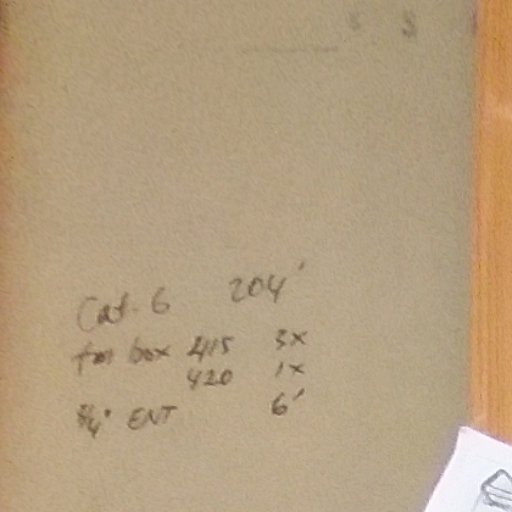 Cat. 6 204'
fan box 415 3x
420 1x
3/4" ENT 6'